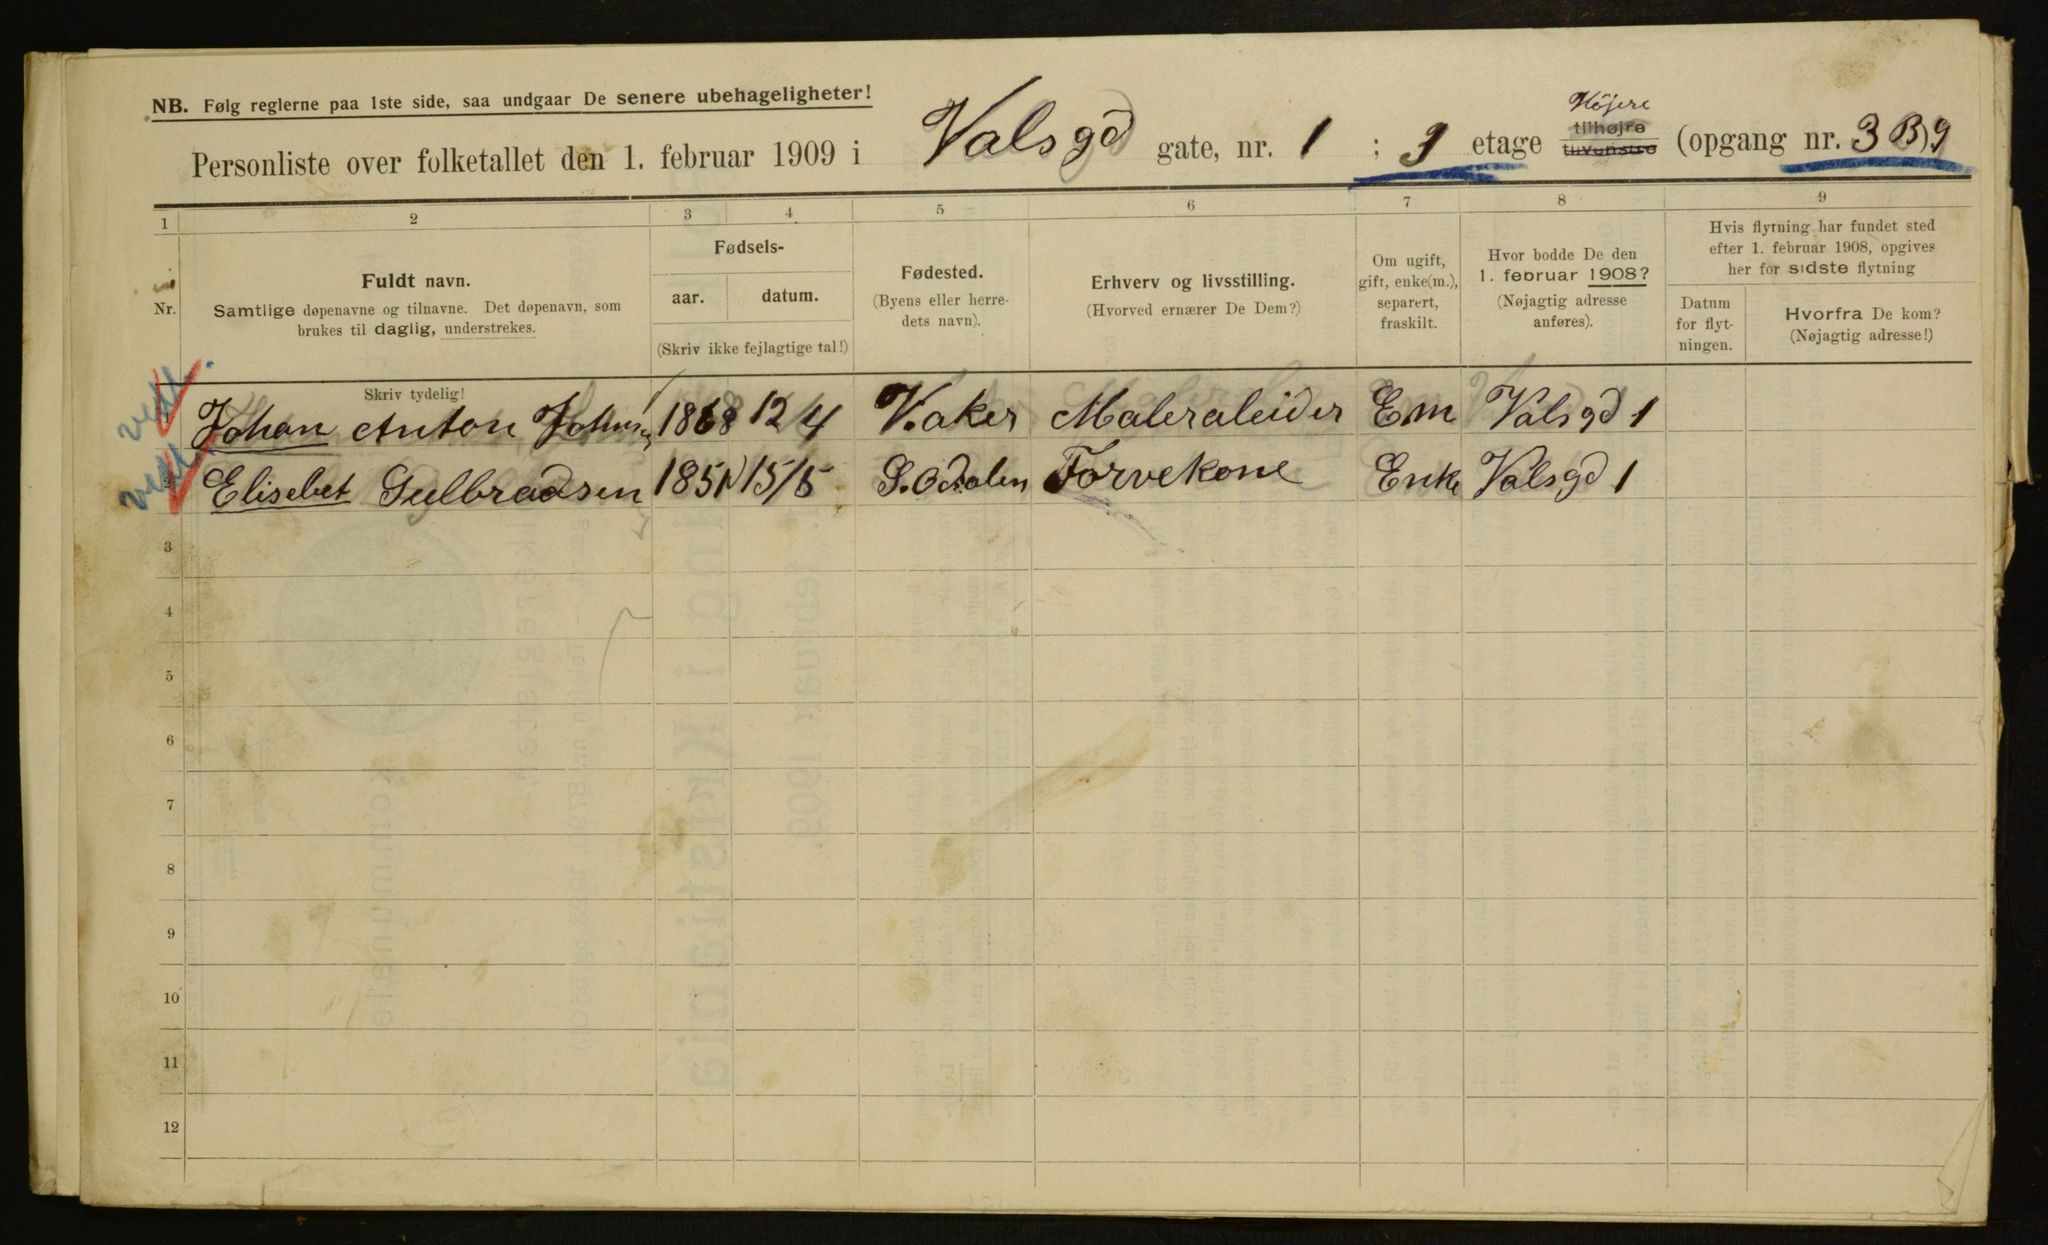 NB. Følg reglerne paa 1ste side, saa undgaar De senere ubehageligheter!
Højere
Personliste over folketallet den 1. februar 1909 i Valsgd gate, nr. 1 ; 3 etage tilhøjre tilvenstre (opgang nr. 3 B) 9
1 2 3 4 5 6 7 8 9
Nr.
Fuldt navn.
Samtlige døpenavne og tilnavne. Det døpenavn, som
brukes til daglig, understrekes.
Fødsels-
aar. datum.
(Skriv ikke fejlagtige tal!)
Fødested.
(Byens eller herre-
dets navn).
Erhverv og livsstilling.
(Hvorved ernærer De Dem?)
Om ugift,
gift, enke(m.),
separert,
fraskilt.
Hvor bodde De den
1. februar 1908?
(Nøjagtig adresse
anføres).
Hvis flytning har fundet sted
efter 1. februar 1908, opgives
her for sidste flytning
Datum
for flyt-
ningen.
Hvorfra De kom?
(Nøjagtig adresse!)
Skriv tydelig!
vedt. Johan Anton Johnsen 1868 12 4 V. Aker Maleraleider Em Valsgd 1
vedt. Elisebet Gulbradsen 1851 15/5 S. Odalen Farvekone Enke Valsgd 1
3
4
5
6
7
8
9
10
11
12